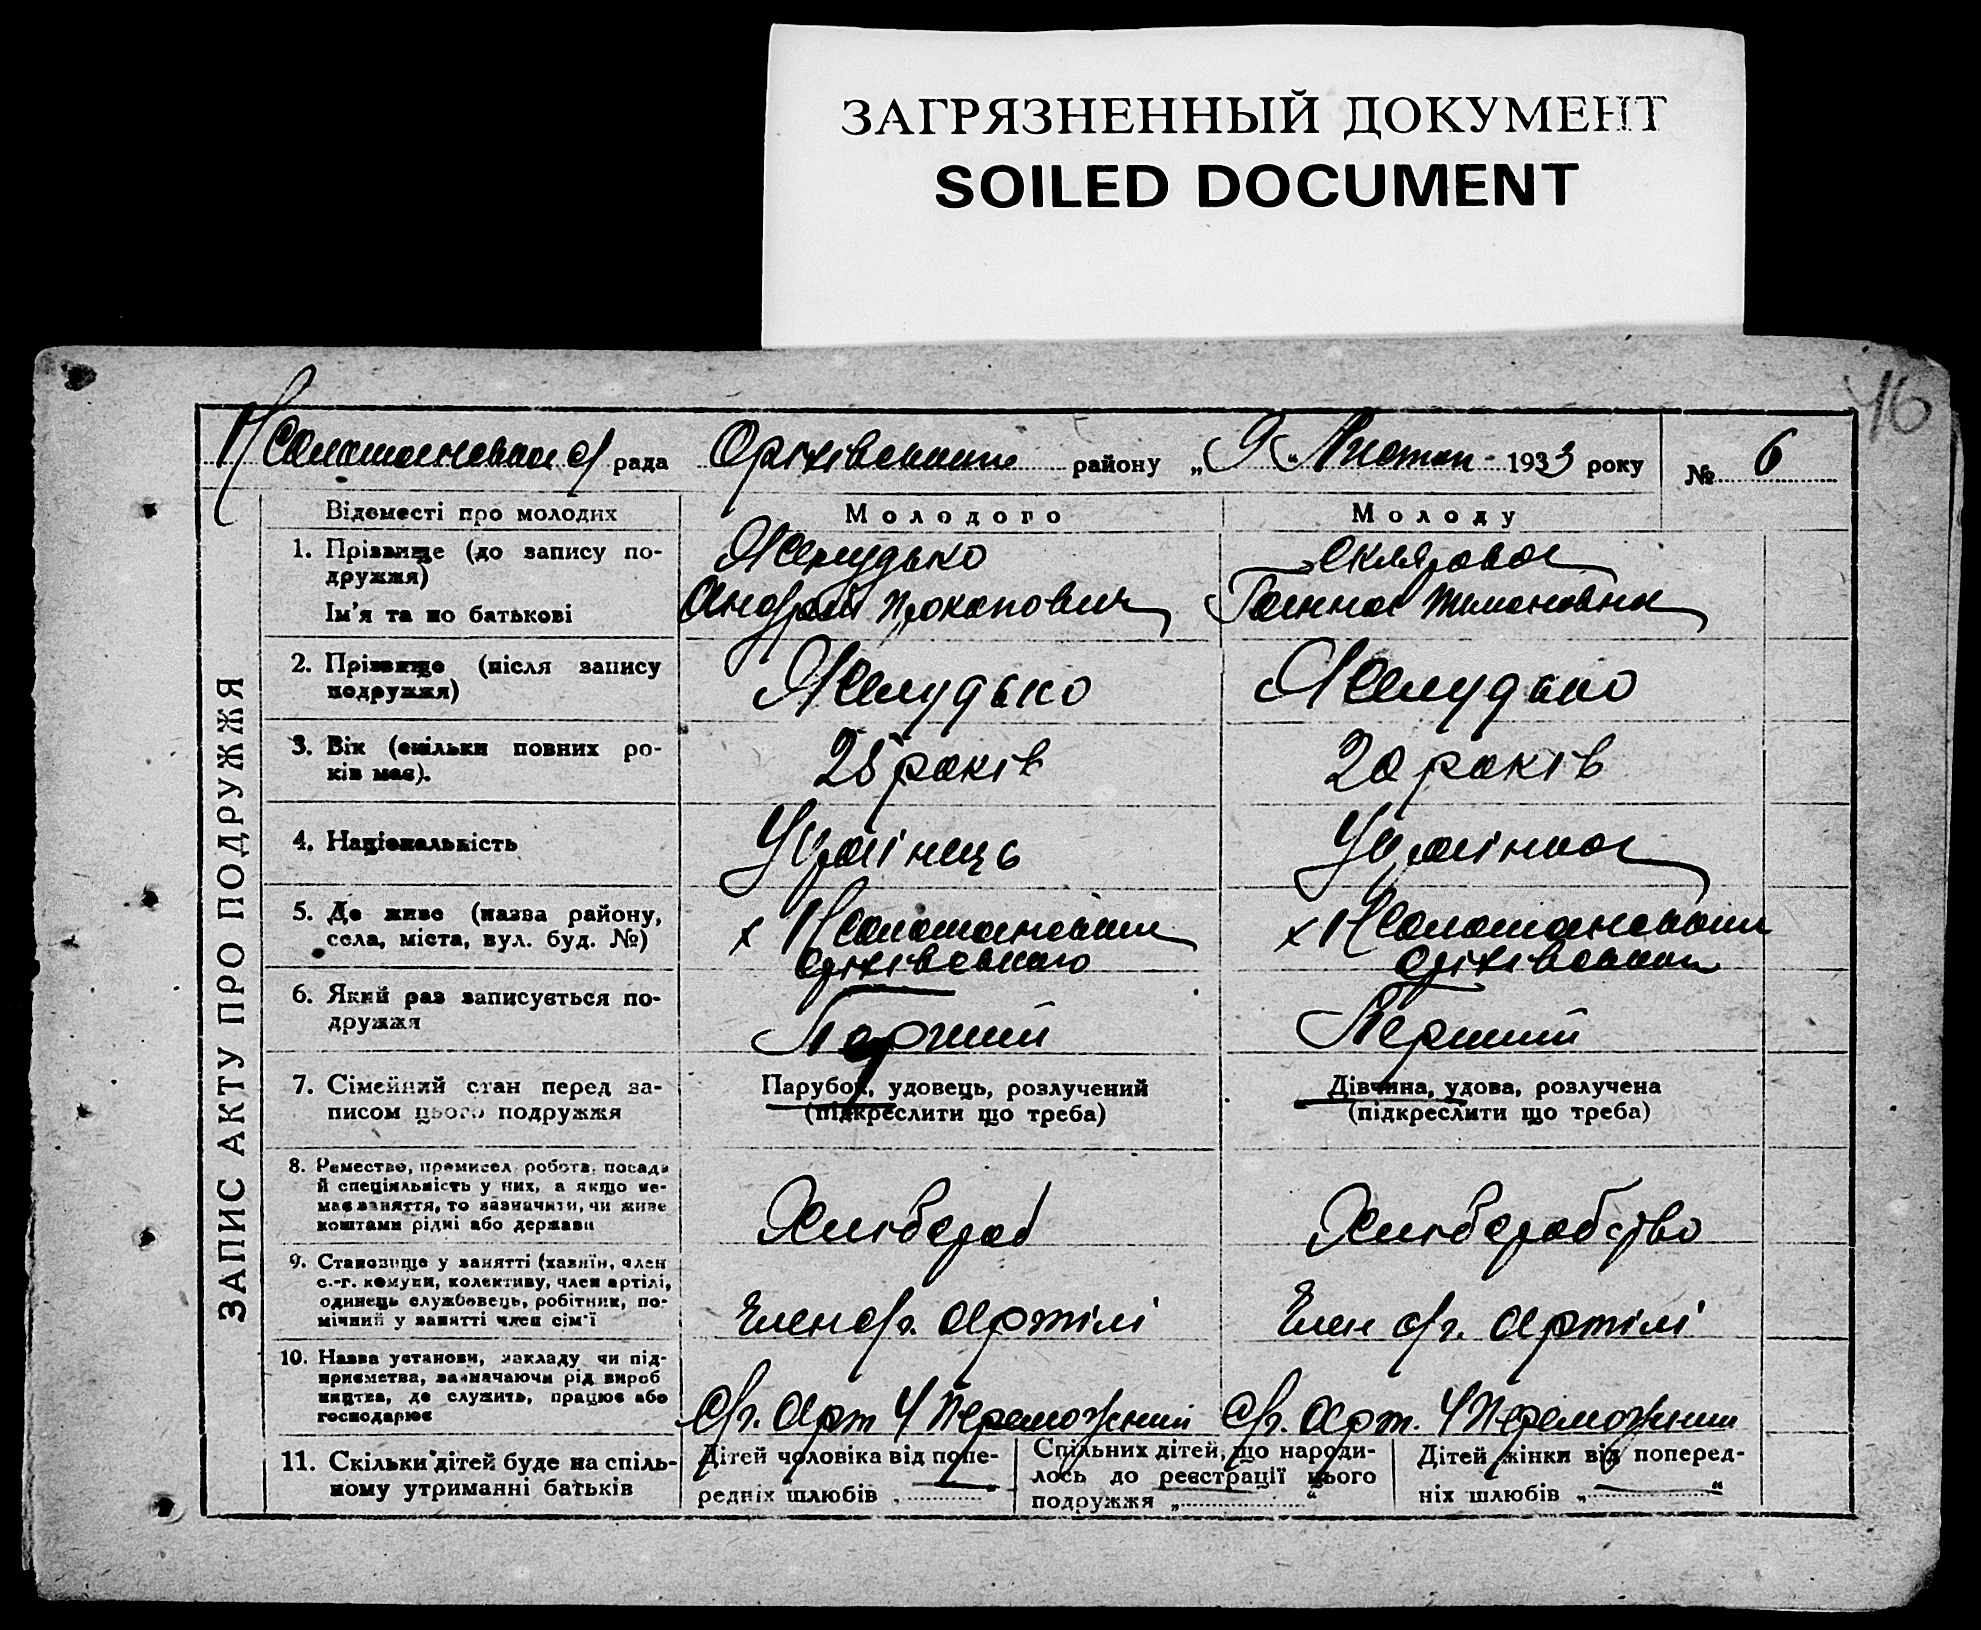 ЗАГРЯЗНЕННЫЙ ДОКУМЕНТ
SOILED DOCUMENT
16
рада Оріхівський району „9“ Листоп 1933 року № 6
ЗАПИС АКТУ ПРО ПОДРУЖЖЯ
Відомості про молодих Молодого Молоду
1. Прізвище (до запису по-
дружжя)
Ім'я та по батькові
Желудько
Андрій Прокопович
Склярова
Ганна Тимоновна
2. Прізвище (після запису
подружжя)
Желудько Желудько
3. Вік (скільки повних ро-
ків має).
25 років 20 років
4. Національність
Українець Українка
5. Де живе (назва району,
села, міста, вул. буд. №)
х
Оріхівського
х
6. Який раз записується по-
дружжя
Перший Перший
7. Сімейний стан перед за-
писом цього подружжя
Парубок, удовець, розлучений
(підкреслити що треба)
Дівчина, удова, розлучена
(підкреслити що треба)
8. Ремество, промисел, робота, посада
й спеціяльність у них, а якщо не-
має заняття, то зазначити, чи живе
коштами рідні або держави
Хлібороб Хліборобство
9. Становище у занятті (хазяїн, член
с.-г. комуни, колективу, член артілі,
одинець службовець, робітник, по-
мічний у занятті член сім'ї
Член с/г. артілі Член с/г. артілі
10. Назва установи, закладу чи під-
приємства, зазначаючи рід вироб
ництва, де служить, працює або
господарює
С/г. арт Ч Переможний С/г. арт. Ч Переможний
11. Скільки дітей буде на спіль-
ному утриманні батьків
Дітей чоловіка від попе-
редніх шлюбів
Спільних дітей, що народи-
лось до реєстрації цього
подружжя „ “
Дітей жінки від поперед-
ніх шлюбів „ “